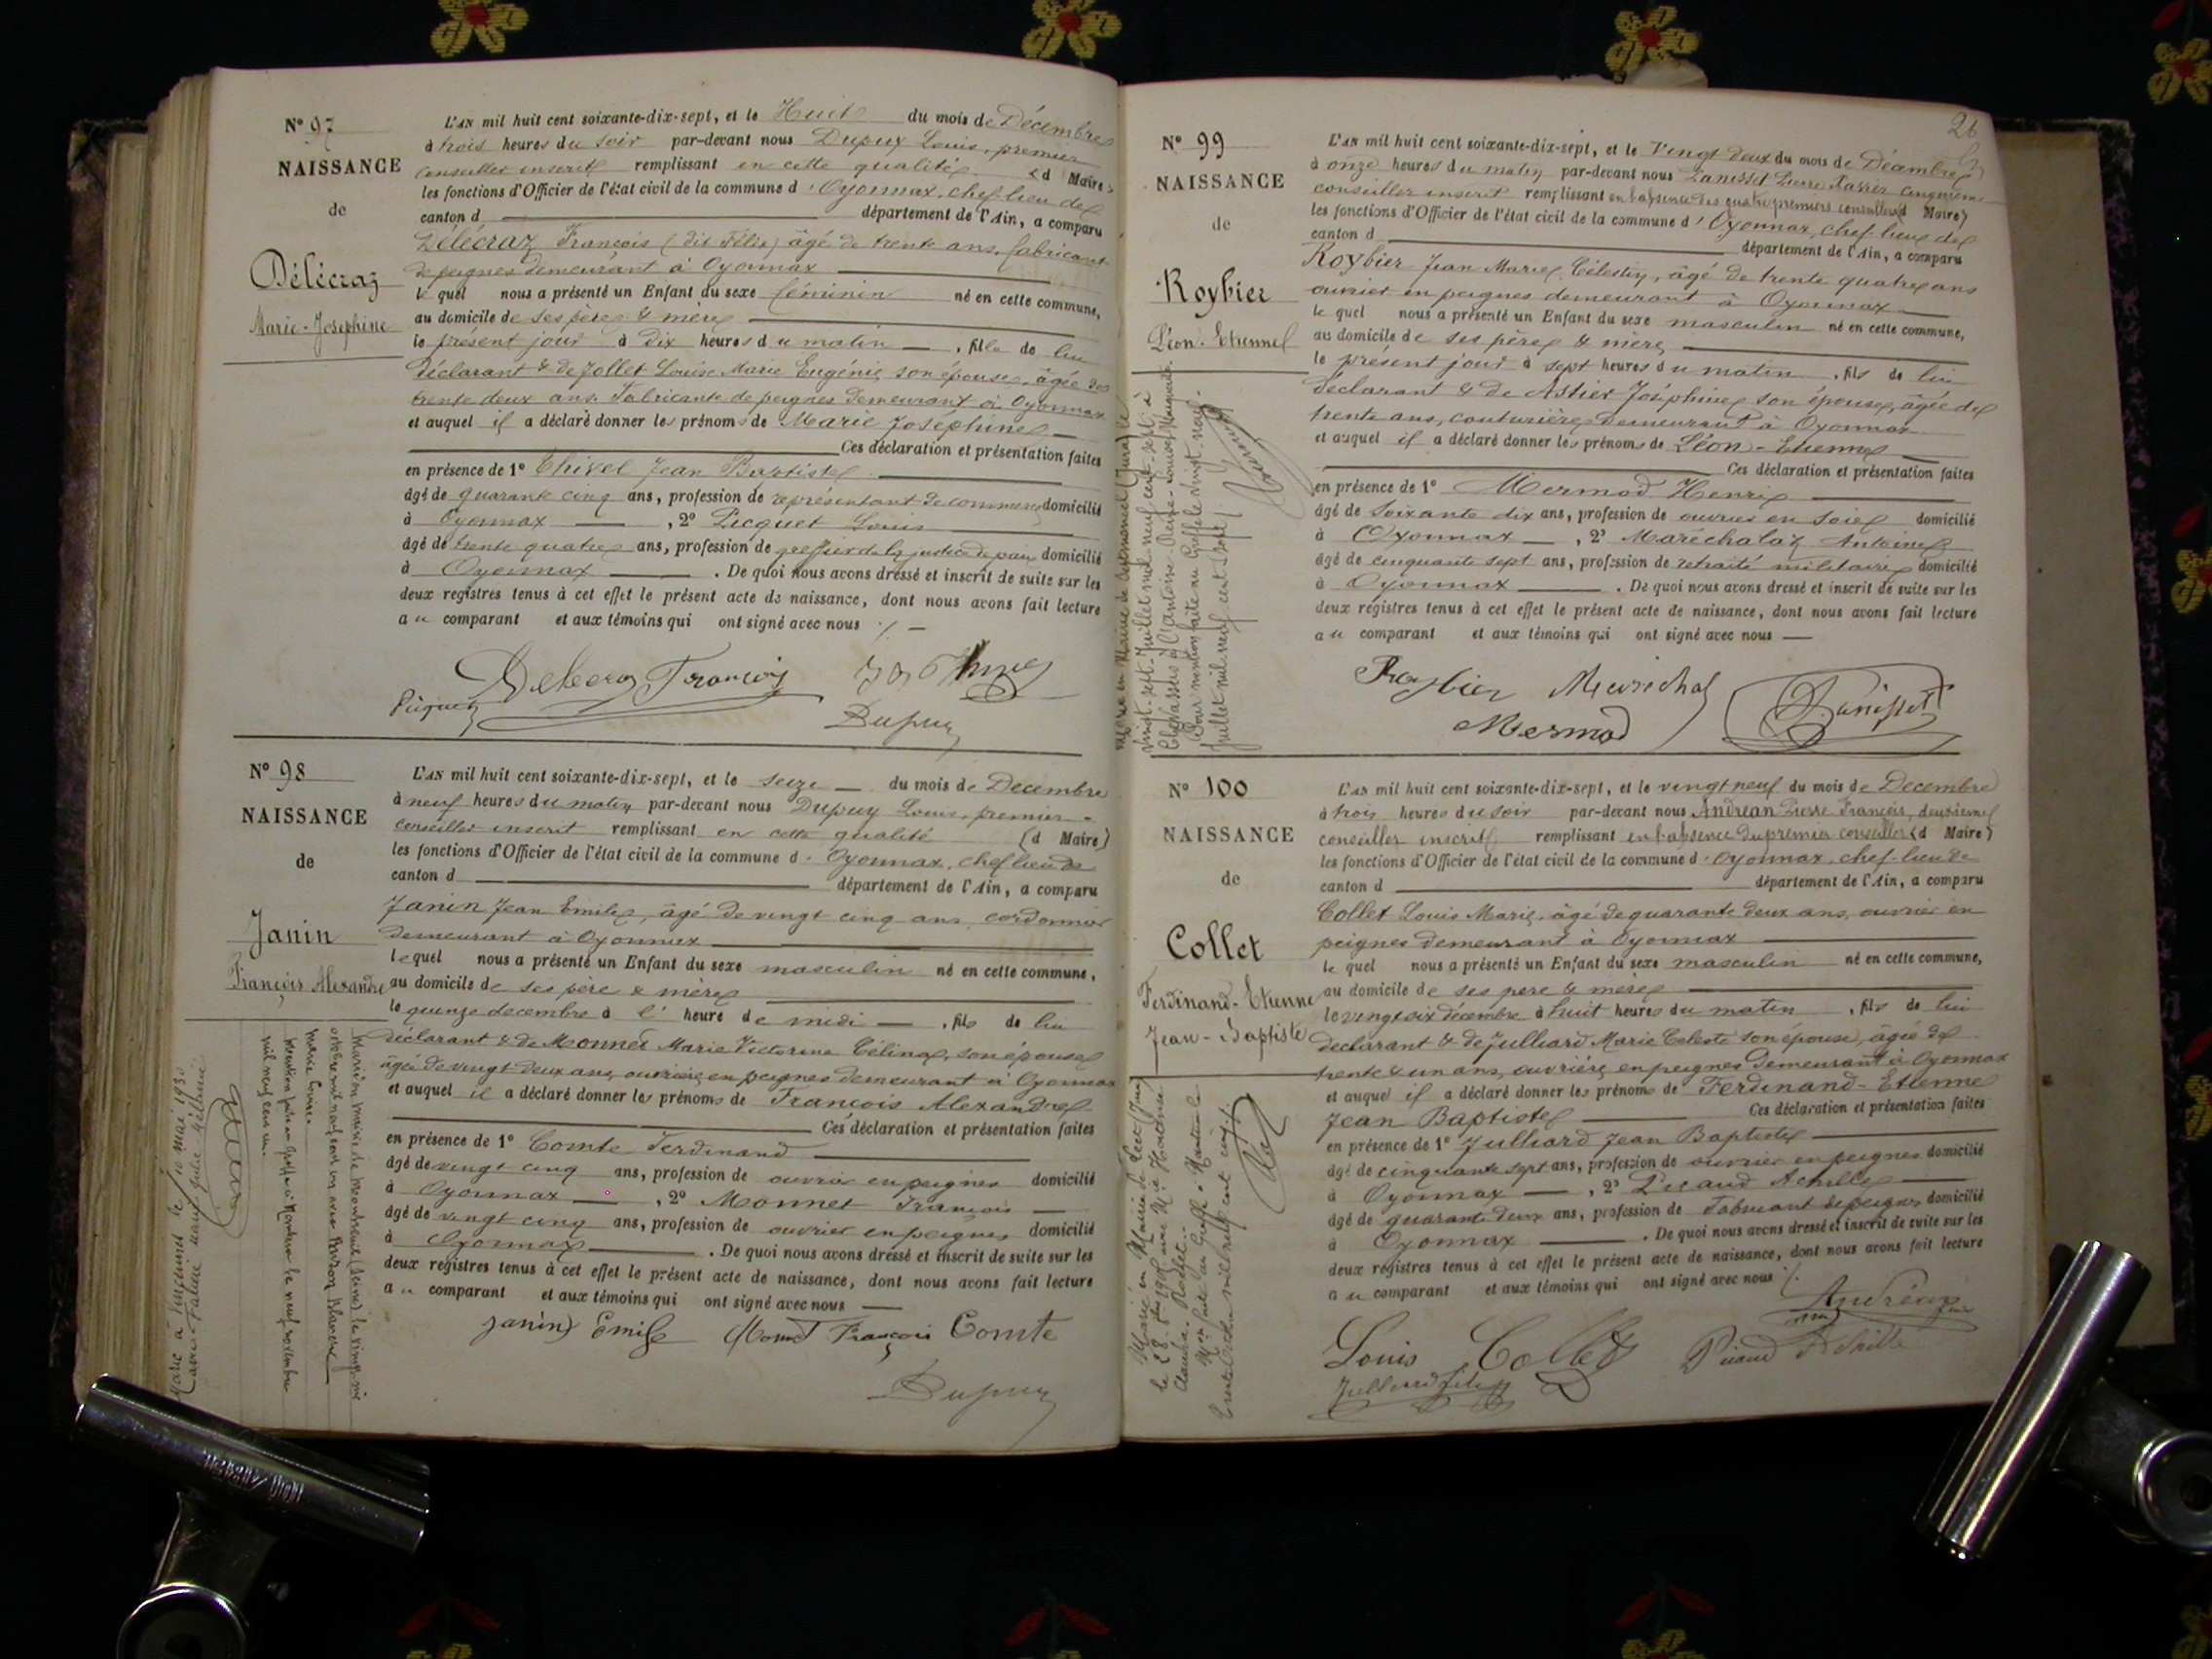 N° 97
NAISSANCE
de
Délécraz
Marie-Joséphine
L'AN mil huit cent soixante-dix-sept, et le Huit du mois de Décembre
à trois heures du soir par-devant nous Dupuy Louis, premier
conseiller inscrit remplissant en cette qualité (d Maire)
les fonctions d'Officier de l'état civil de la commune d'Oyonnax, chef-lieu de
canton d département de l'Ain, a comparu
Délécraz François (dit Félix) âgé de trente ans, fabricant
de peignes demeurant à Oyonnax
le quel nous a présenté un Enfant du sexe féminin né en cette commune,
au domicile de ses père & mère
le présent jour à dix heures du matin , fille de lui
déclarant & de Jollet Louise Marie Eugénie son épouse, âgée de
trente deux ans, Fabricante de peignes demeurant à Oyonnax
et auquel il a déclaré donner les prénoms de Marie Joséphine
Ces déclaration et présentation faites
en présence de 1° Thivel Jean Baptiste
âgé de quarante cinq ans, profession de représentant de commerce domicilié
à Oyonnax , 2° Picquet Louis
âgé de trente quatre ans, profession de greffier de la justice de paix domicilié
à Oyonnax . De quoi nous avons dressé et inscrit de suite sur les
deux registres tenus à cet effet le présent acte de naissance, dont nous avons fait lecture
au comparant et aux témoins qui ont signé avec nous
Delecraz François
Picquet
Dupuy
N° 98
NAISSANCE
de
Janin
François Alexandre
L'AN mil huit cent soixante-dix-sept, et le seize du mois de Décembre
à neuf heures du matin par-devant nous Dupuy Louis, premier
conseiller inscrit remplissant en cette qualité (d Maire)
les fonctions d'Officier de l'état civil de la commune d'Oyonnax, chef lieu de
canton d département de l'Ain, a comparu
Janin Jean Emile, âgé de vingt cinq ans, cordonnier
demeurant à Oyonnax
lequel nous a présenté un Enfant du sexe masculin né en cette commune,
au domicile de ses père & mère
le quinze décembre à l' heure de midi , fils de lui
déclarant & de Monnet Marie Victorine Célina, son épouse
âgée de vingt-deux ans, ouvrière en peignes demeurant à Oyonnax
et auquel il a déclaré donner les prénoms de François Alexandre
Ces déclaration et présentation faites
en présence de 1° Comte Ferdinand
âgé de vingt cinq ans, profession de ouvrier en peignes domicilié
à Oyonnax , 2° Monnet François
âgé de vingt cinq ans, profession de ouvrier en peignes domicilié
à Oyonnax . De quoi nous avons dressé et inscrit de suite sur les
deux registres tenus à cet effet le présent acte de naissance, dont nous avons fait lecture
au comparant et aux témoins qui ont signé avec nous
Janin Emile Monnet François Comte
Dupuy
Marié en mairie de Montreuil (Seine) le vingt six
octobre mil neuf cent un avec Blanche
Marie Louise.
Mention faite au greffe à Nantua le neuf novembre
mil neuf cent un.
Marié à Vincennes le 10 mai 1930
26
N° 99
NAISSANCE
de
Roybier
Léon-Etienne
L'AN mil huit cent soixante-dix-sept, et le Vingt deux du mois de Décembre
à onze heures du matin par-devant nous Zanisset Pierre Xavier cinquième
conseiller inscrit remplissant en l'absence des quatre premiers conseillers (d Maire)
les fonctions d'Officier de l'état civil de la commune d'Oyonnax, chef-lieu de
canton d département de l'Ain, a comparu
Roybier Jean Marie Célestin, âgé de trente quatre ans
ouvrier en peignes demeurant à Oyonnax
le quel nous a présenté un Enfant du sexe masculin né en cette commune,
au domicile de ses père & mère
le présent jour à sept heures du matin , fils de lui
déclarant & de Astier Joséphine son épouse, âgée de
trente ans, couturière demeurant à Oyonnax
et auquel il a déclaré donner les prénoms de Léon-Etienne
Ces déclaration et présentation faites
en présence de 1° Mermod Henri
âgé de Soixante dix ans, profession de ouvrier en soie domicilié
à Oyonnax , 2° Maréchalaz Antoine
âgé de cinquante sept ans, profession de retraité militaire domicilié
à Oyonnax . De quoi nous avons dressé et inscrit de suite sur les
deux registres tenus à cet effet le présent acte de naissance, dont nous avons fait lecture
au comparant et aux témoins qui ont signé avec nous
Roybier Maréchal
Mermod Zanisset
vingt-sept Juillet mil neuf cent sept à
Pour mention faite au Greffe le vingt-neuf
Juillet mil neuf cent sept
N° 100
NAISSANCE
de
Collet
Ferdinand-Etienne
Jean-Baptiste
L'AN mil huit cent soixante-dix-sept, et le vingt neuf du mois de Décembre
à trois heures du soir par-devant nous Andréan Pierre François, deuxième
conseiller inscrit remplissant en l'absence du premier conseiller (d Maire)
les fonctions d'Officier de l'état civil de la commune d'Oyonnax, chef-lieu de
canton d département de l'Ain, a comparu
Collet Louis Marie, âgé de quarante deux ans, ouvrier en
peignes demeurant à Oyonnax
le quel nous a présenté un Enfant du sexe masculin né en cette commune,
au domicile de ses père & mère
le vingt six décembre à huit heures du matin , fils de lui
déclarant & de Julliard Marie Céleste son épouse, âgée de
trente & un ans, ouvrière en peignes demeurant à Oyonnax
et auquel il a déclaré donner les prénoms de Ferdinand-Etienne
Jean Baptiste Ces déclaration et présentation faites
en présence de 1° Julliard Jean Baptiste
âgé de cinquante sept ans, profession de ouvrier en peignes domicilié
à Oyonnax , 2° Picaud Achille
âgé de quarante deux ans, profession de Fabricant de peignes domicilié
à Oyonnax . De quoi nous avons dressé et inscrit de suite sur les
deux registres tenus à cet effet le présent acte de naissance, dont nous avons fait lecture
au comparant et aux témoins qui ont signé avec nous
Andréan
Louis Collet Picaud Achille